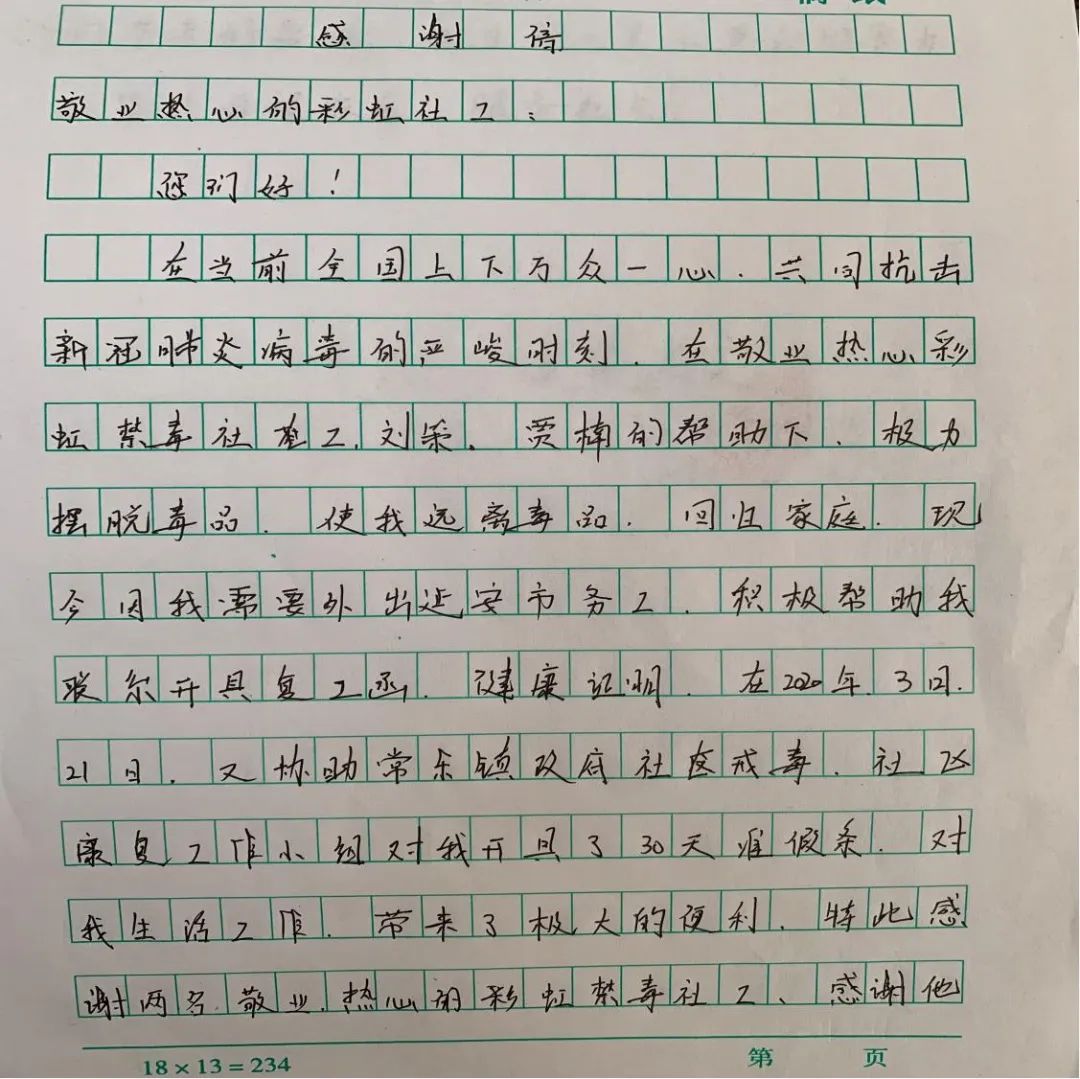 感谢信
敬业热心的彩虹社工：
您们好！
在当前全国上下万众一心.共同抗击
新冠肺炎病毒的严峻时刻.在敬业热心彩
虹禁毒社工.刘策.贾楠的帮助下.极力
摆脱毒品.使我远离毒品.回归家庭.现
今因我需要外出延安市务工.积极帮助我
联尔开具复工函.健康证明.在2020年.3月.
21日.又协助常乐镇政府社区戒毒.社区
康复工作小组对我开具了30天准假条.对
我生活工作.带来了极大的便利.特此感
谢两名.敬业.热心的彩虹禁毒社工、感谢他
18×13=234
第 页